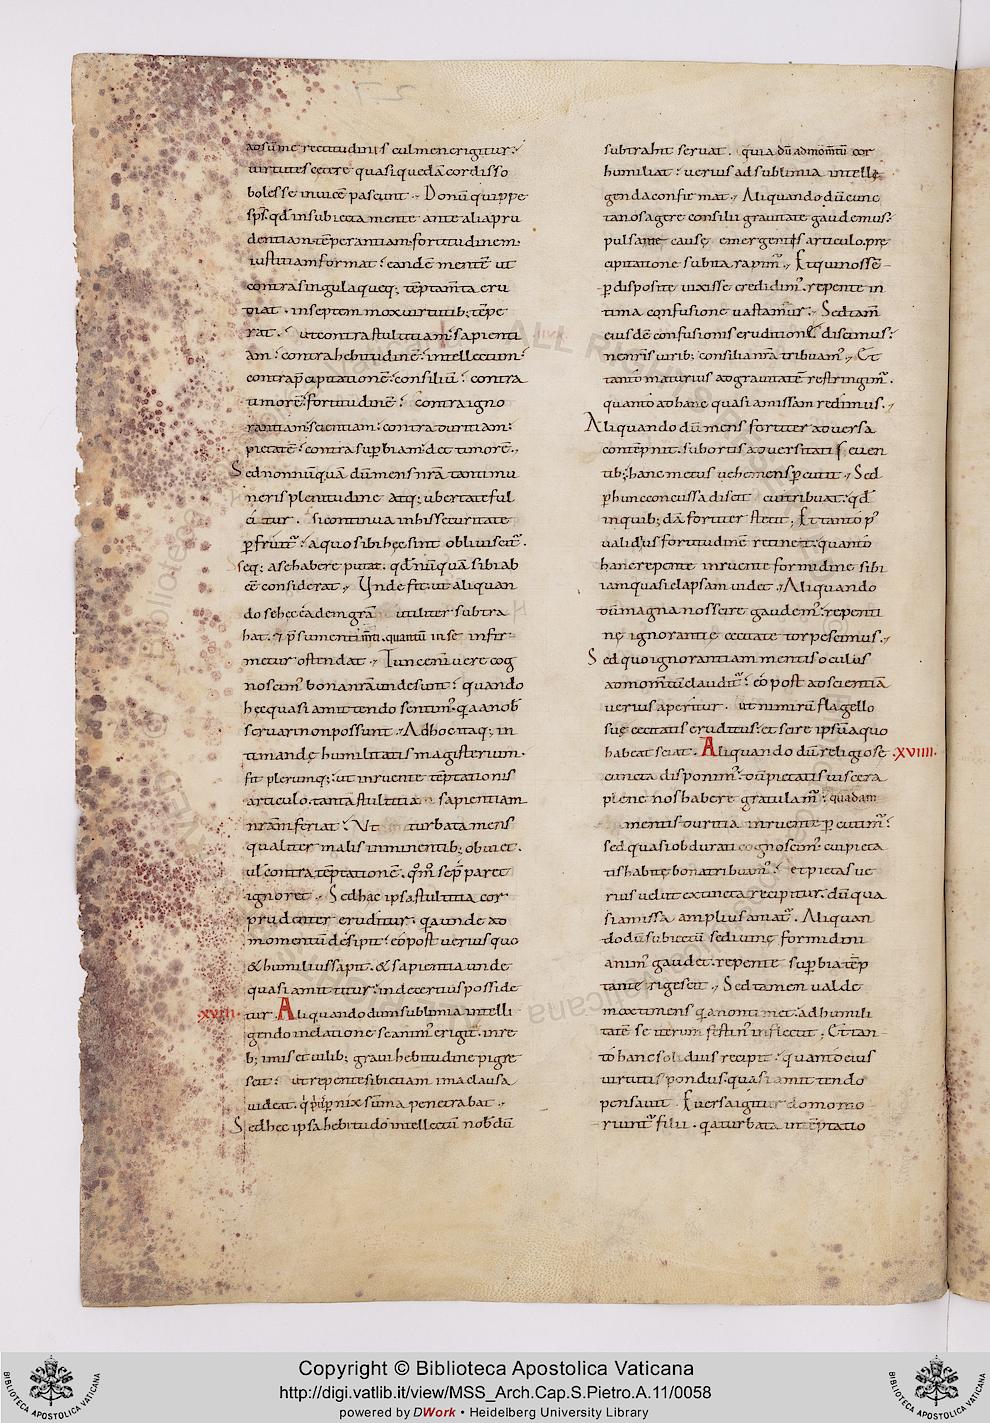 ad sūme rectitudinis culmen erigitur.
virtutes cetere quasi quedā cordis so
boles se invicē pascunt. Donū quippe
sp̄s. qd̄ in subiecta mente ante alia pru
dentiam. tēperantiam. fortitudinem.
iustitiam format. eandē mentē ut
contra singula queq; tēptam̄ta eru
diat. in septem mox virtutib; tēpe
rat. ut contra stultitiam. sapienti
am. contra hebitudinē. intellectum.
contra p̄cipitationē. consiliū. contra
timorē. fortitudinē. contra igno
rantiam. scientiam. contra duritiam.
pietatē. contra supbiam. det timorē.
Sed nonnūquā dū mens nr̄a tanti mu
neris plenitudine atq; ubertate ful
citur. si continua in his securitate
pfruit̄. a quo sibi hęc sint obliviscit̄.
seq; a se habere putat. qd̄ nūquā sibi ab
eē considerat. Unde fit. ut aliquan
do se hęc eadem gr̄a utiliter subtra
hat. & p̄sumenti m̄ti. quantū in se infir
metur ostendat. Tunc eni vere cog
noscim' bona nr̄a unde sunt. quando
hęc quasi amittendo sentim'. q̄a a nob̄
servari non possunt. Ad hoc itaq; in
timandę humilitatis magisterium.
fit plerumq; ut inruente tēptationis
articulo. tanta stultitia sapientiam
nr̄am feriat. Ut turbata mens
qualiter malis inminentib; obviet.
ul̄ contra tēptationē. qm̄o sep̄ paret
ignoret. Sed hac ipsa stultitia cor
prudenter eruditur. q̄a unde ad
momentū desipit. eo post verius quo
& humilius sapit. & sapientia unde
quasi amittitur. inde certius posside
.xviii. tur. Aliquando dum sublimia intelli
gendo in elatione se anim' erigit. in re
b; imis et vilib; gravi hebitudine pigre
scit. ut repente sibi etiam ima clausa
videat. q̄ pnix sūma penetrabat.
Sed hec ipsa hebitudo intellectū nob̄ dū
subtrahit servat. quia dū ad mom̄tū cor
humiliat. verius ad sublimia intellę
genda confirmat. Aliquando dū cunc
ta nos agere consilii gravitate gaudemus.
pulsante causę emergentis articulo. pre
cipitatione subita rapim'. Et qui nos sē
p disposite vixisse credidim'. repente in
tima confusione vastamur. Sed tam̄
eius dē confusionis eruditione discimus.
ne nr̄is virib; consilia nr̄a tribuam'. Et
tanto maturius ad gravitatē restringim'.
quanto ad hanc quasi amissam redimus.
Aliquando dū mens fortiter adversa
contēpnit. subortis adversitatis even
tib; hanc metus vehemens pcutit. Sed
p hunc concussa discit cui tribuat. qd̄
in quib;dā fortiter stetit. Et tanto p'
validius fortitudinē retinet. quanto
hanc repente inruente formidine sibi
iam quasi elapsam videt. Aliquando
dū magna nos scire gaudem'. repenti
nę ignorantię cecitate torpescimus.
Sed quo ignorantiam mentis oculus
ad mom̄tū claudit̄. eo post ad scientiā
verius aperitur. ut nimirū flagello
suę cecitatis eruditus. et scire ipsū a quo
habeat sciat. Aliquando dū religiose .xviiii.
cuncta disponim'. dū pietatis viscera
plene nos habere gratulam̄. quadam
mentis duritia inruente pcutim̄.
sed quasi obdurati cognoscim'. cui pieta
tis habitę bona tribuam'. et pietas ve
rius velut extincta recipitur. dū qua
si amissa amplius amat̄. Aliquan
do dū subiectū se divinę formidini
anim' gaudet. repente supbia tēp
tante rigescit. Sed tamen valde
mox timens q̄a non timet. ad humili
tatē se iterum festin' inflectit. Et tan
to hanc solidius recipit. quanto eius
virtutis pondus. quasi amittendo
pensavit. Eversa igitur domo mo
riunt̄ filii. q̄a turbata in tēptatio
Copyright © Biblioteca Apostolica Vaticana
http://digi.vatlib.it/view/MSS_Arch.Cap.S.Pietro.A.11/0058
powered by DWork • Heidelberg University Library
BIBLIOTECA APOSTOLICA VATICANA
BIBLIOTECA APOSTOLICA VATICANA